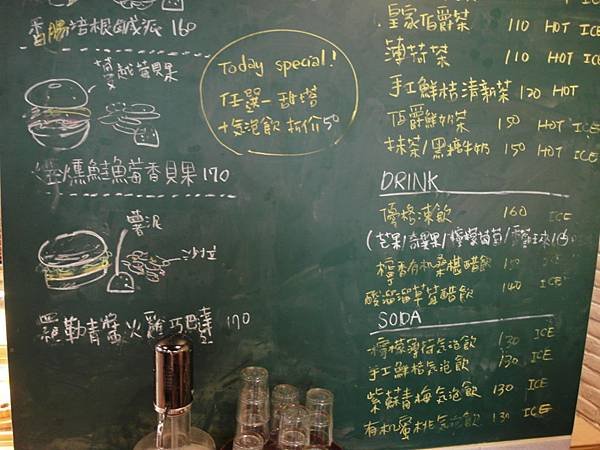 香腸培根鹹派 160
蔓越莓貝果
煙燻鮭魚茴香貝果 170
薯泥
沙拉
羅勒青醬火雞巧巴達 170
Today special!
任選一甜塔
+氣泡飲 折价50
皇家伯爵茶 110 HOT ICE
薄荷茶 110 HOT ICE
手工鮮桔清新茶 120 HOT
伯爵鮮奶茶 150 HOT ICE
抹茶/黑糖牛奶 150 HOT ICE
DRINK
優格凍飲 160 ICE
(芒果/奇異果/
檸香有机桑椹醋飲 150 ICE
酸溜溜草莓醋飲 140 ICE
SODA
檸檬薄荷氣泡飲 130 ICE
手工鮮桔氣泡飲 130 ICE
紫蘇青梅氣泡飲 130 ICE
有机蜜桃氣泡飲 130 ICE